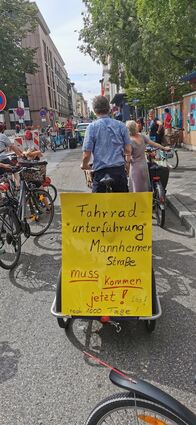 Fahrrad-
"unterführung"
Mannheimer
Straße
muss kommen
jetzt!
nach 1000 Tage